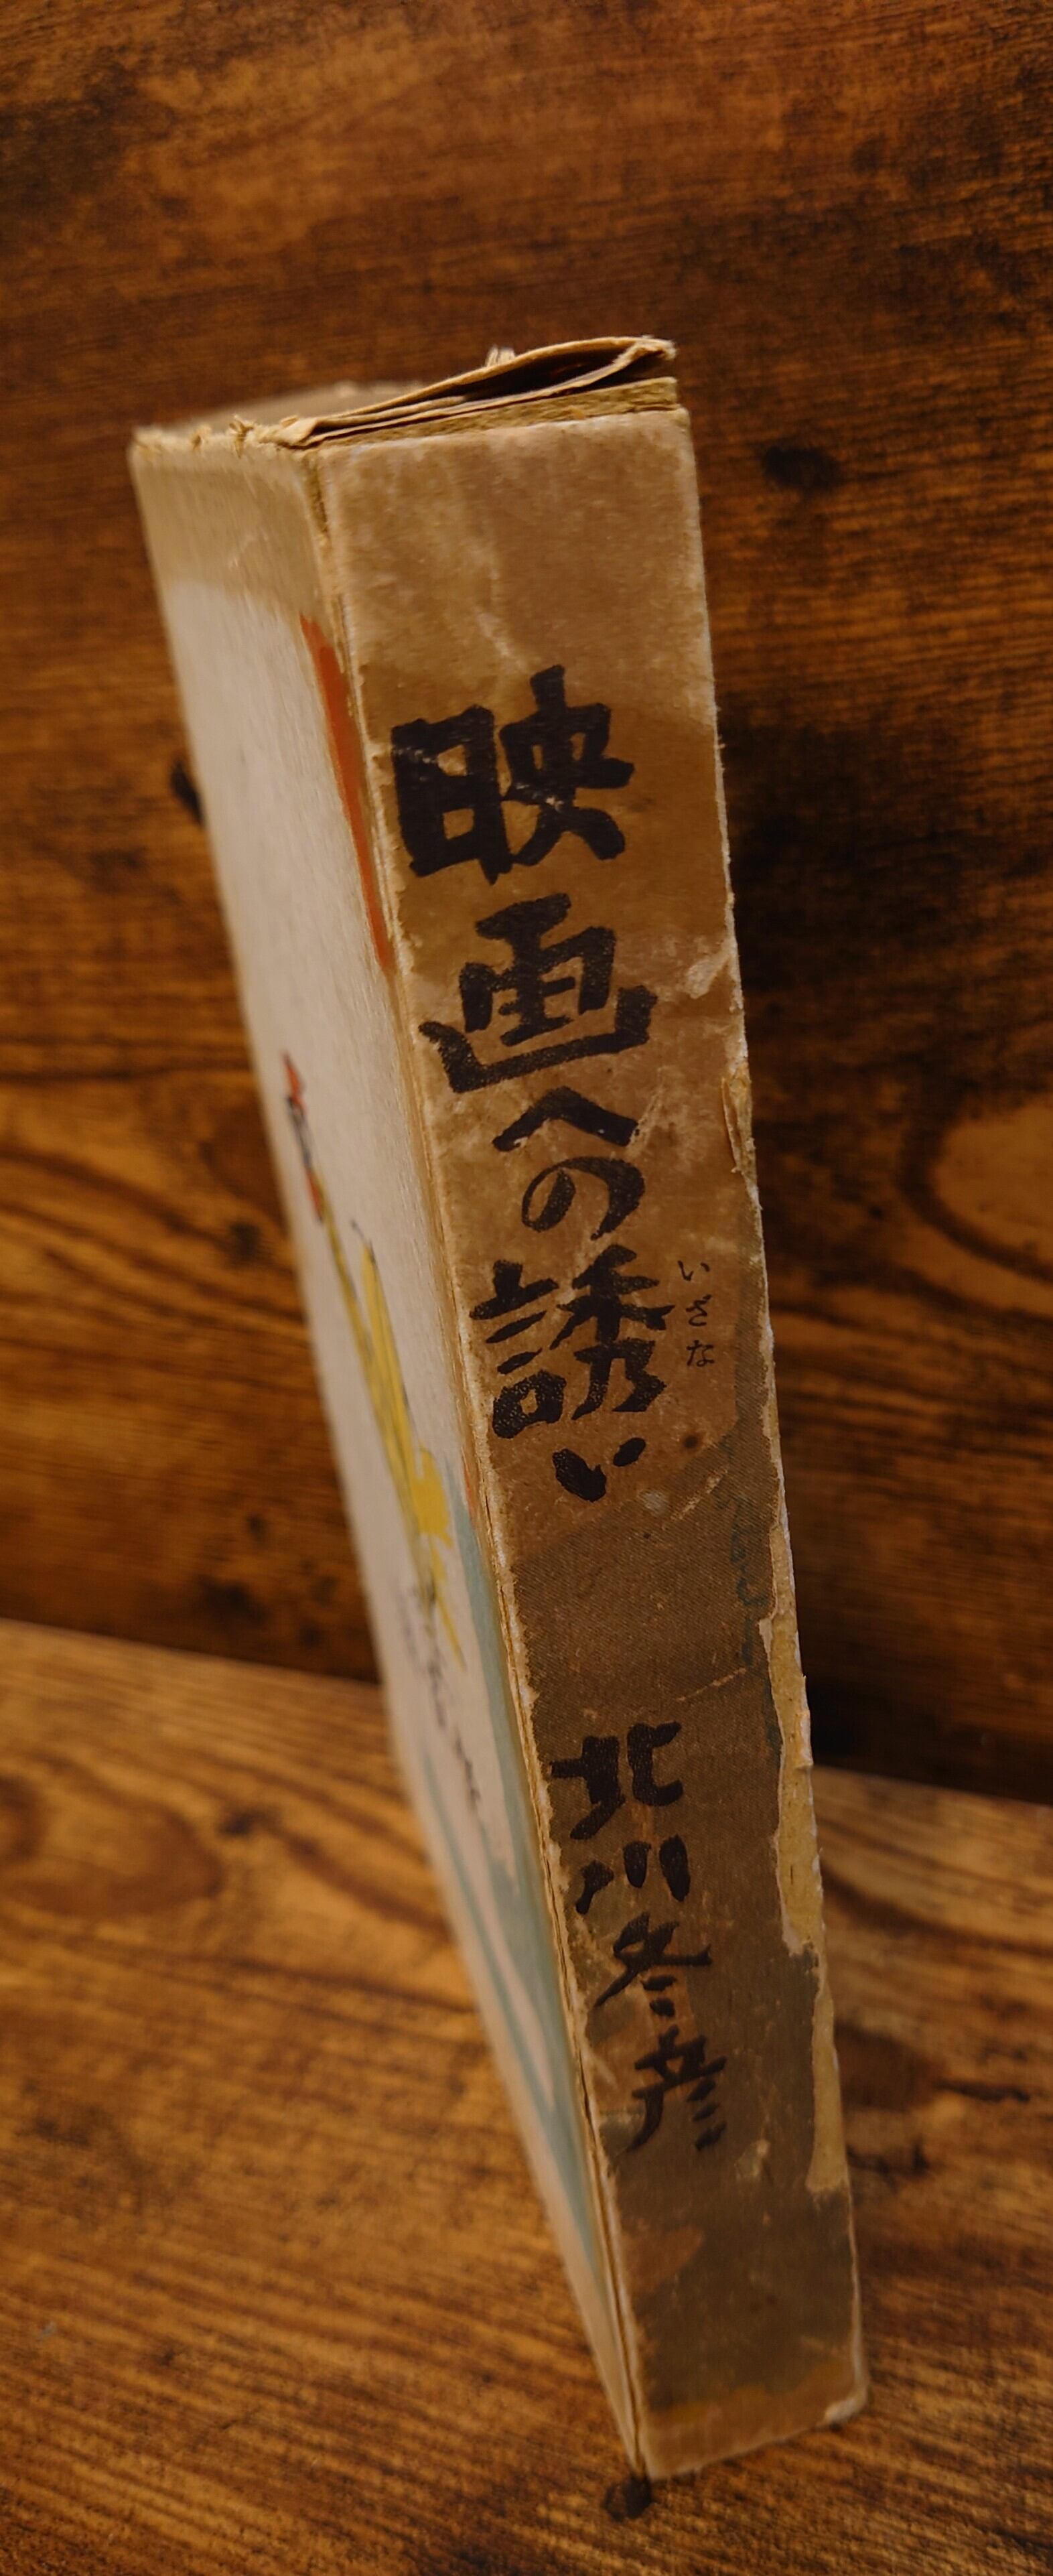 映画への誘い
いざな
北川冬彦